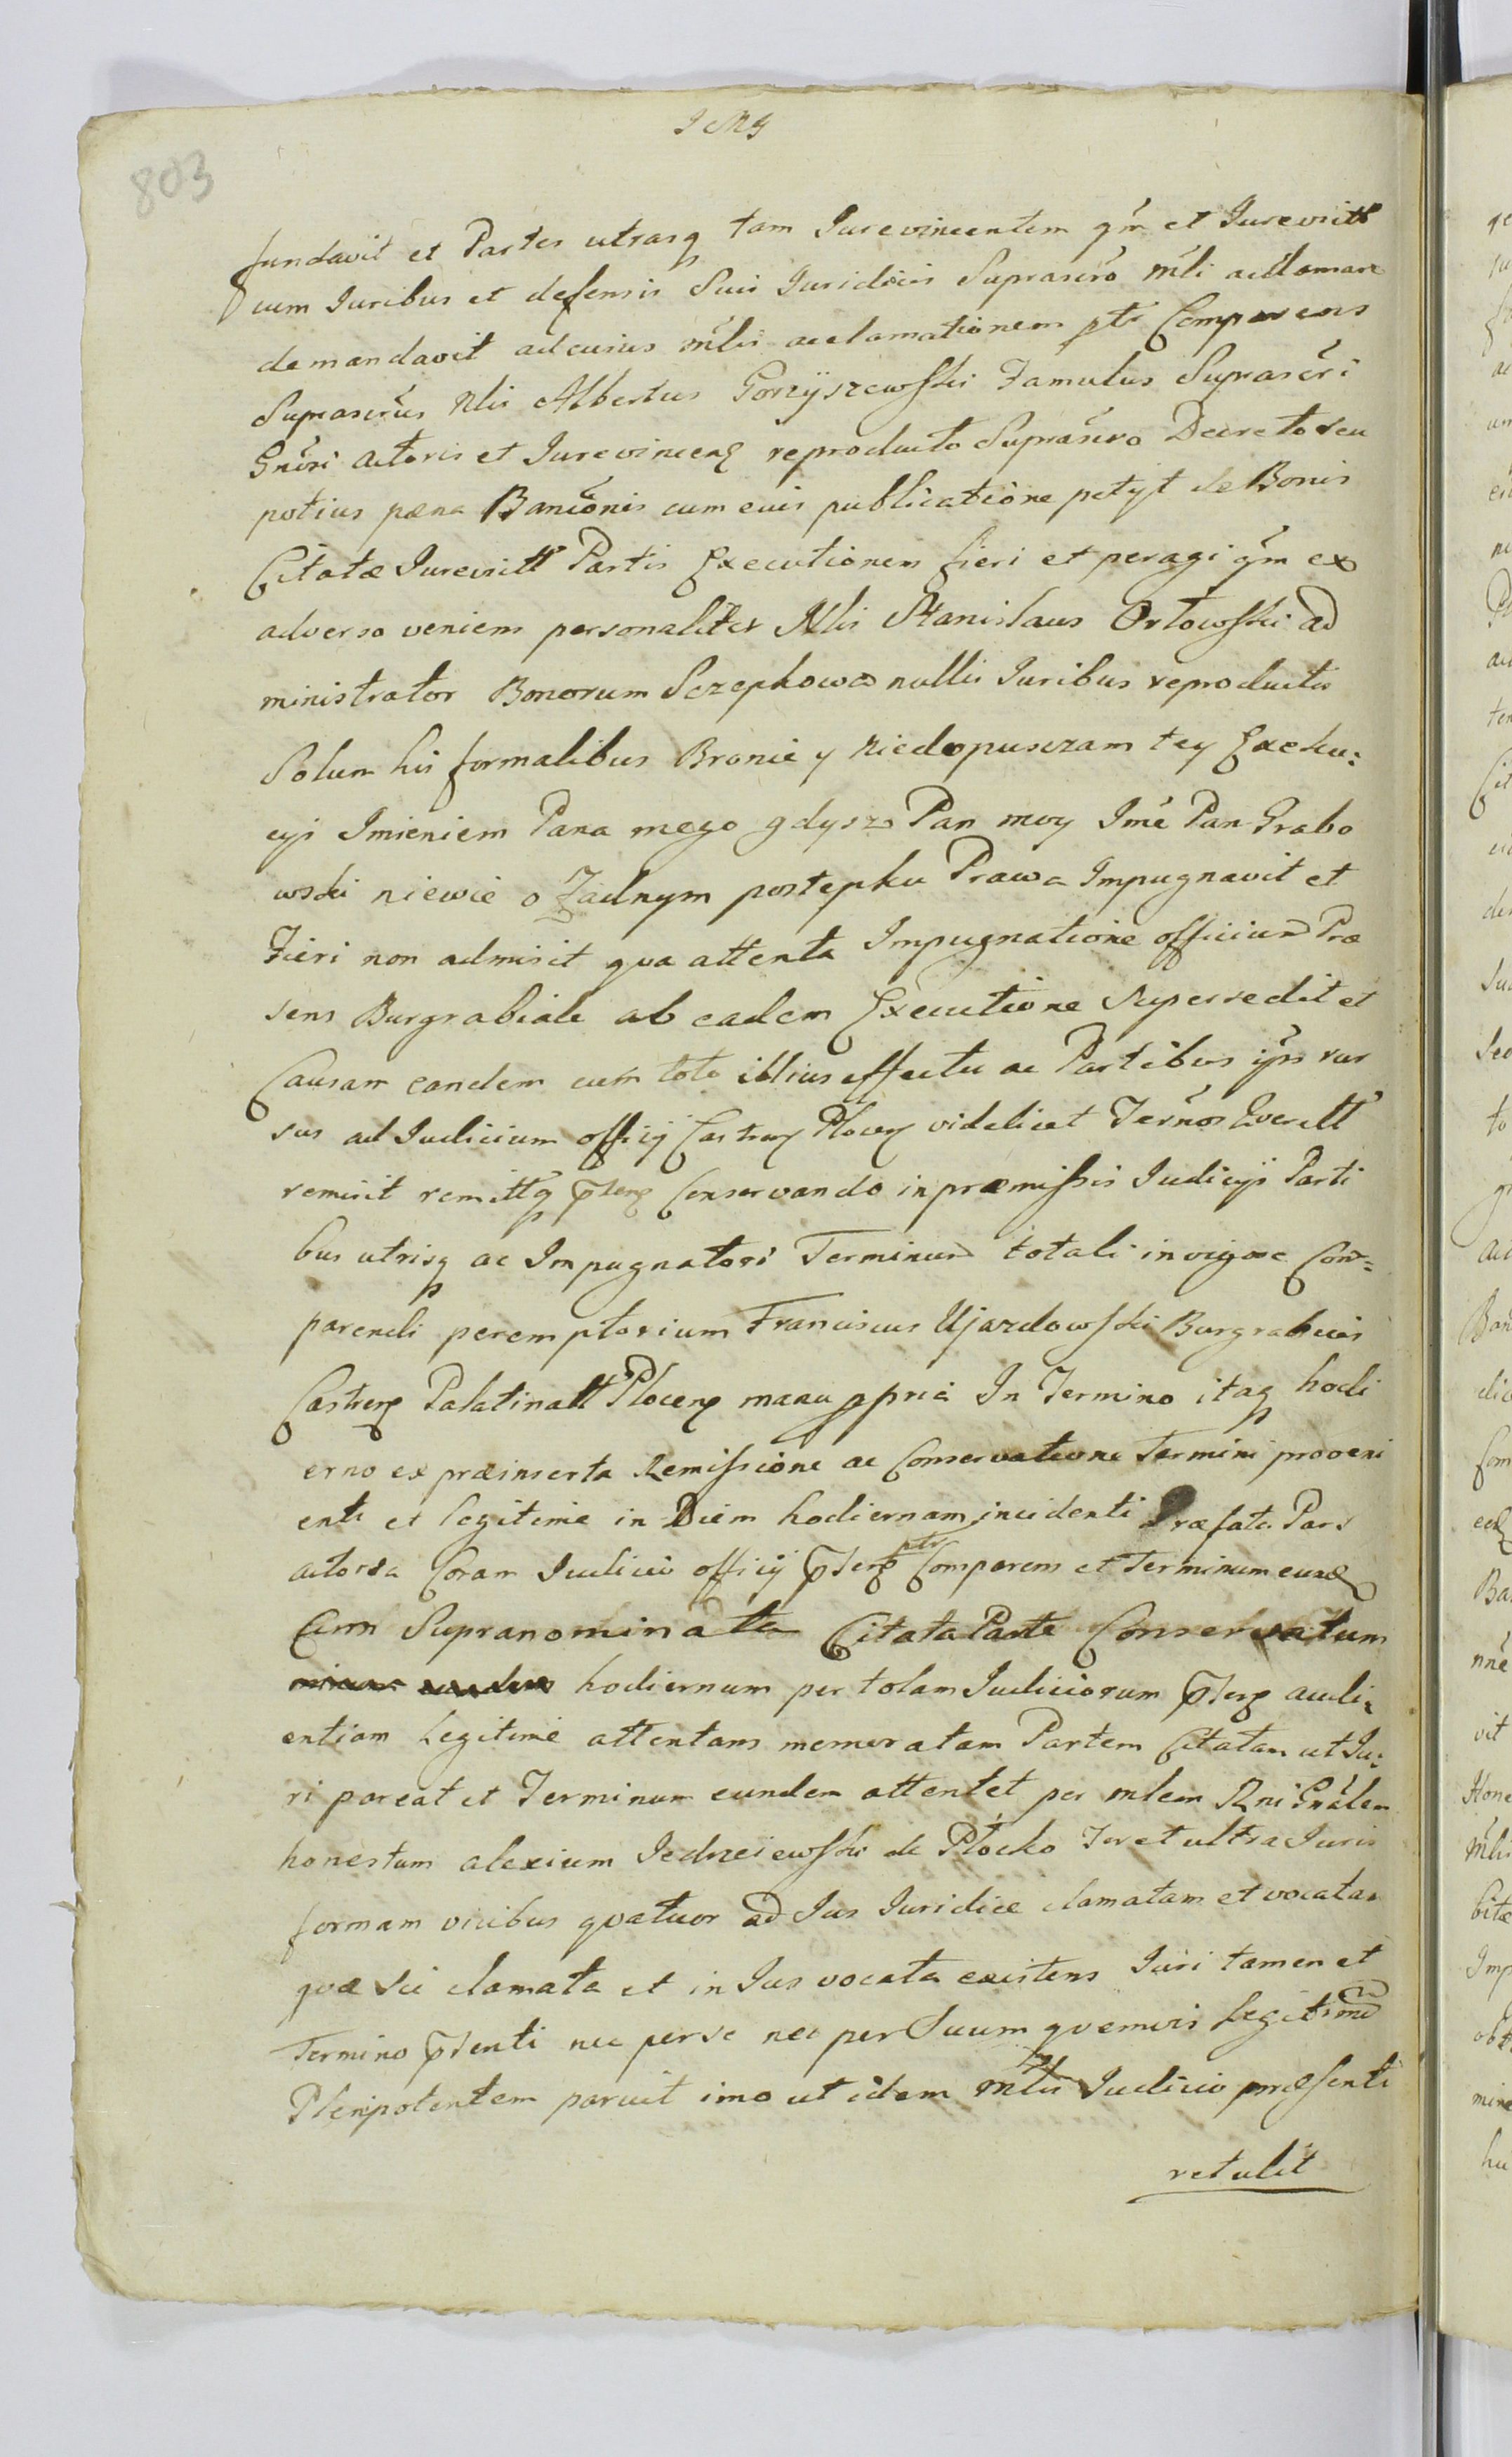 803
fundavit et Partes utrasq tam Iurevincentem qm et Iurevictt
cum Iuribus et defensis Suis Iuridicis Suprascro mli acclamare
demandavit ad cuius mlis acclamationem ptr Comparens
Suprascrus Nlis Albertus Gorzyszewski Famulus Suprascri
Gnosi actoris et Iurevincen reproducto Suprascro Decreto seu
potius pæna Bancionis cum eius publicatione petijt de Bonis
Citatæ Iurevictt Partis Executionem fieri et peragi qm ex
adverso veniens personaliter Nlis Stanislaus Orłowski ad
ministrator Bonorum Sczepkowo nullis Iuribus reproductis
Solum his formalibus Bronie y niedopuszczam tey Exeku:
cyi Imieniem Pana mego gdysz Pan moy Imć Pan Grabo
wski niewie o Zadnym postepku Prawa Impugnavit et
Fieri non admisit qva attenta Impugnatione officium Præ
sens Burgrabiale ab eadem Executione Supersedit et
Causam eandem cum toto illius effectu ac Partibus ijsm rur
sus ad Iudicium officij Castren Plocen videlicet Termos Querell
remisit remittq pnten Conservando in præmissis Iudicijs Parti
bus utrisq ac Impugnatori Terminum totali in vigore Com=
parendi peremptorium Franciscus Ujazdowski Burgrabius
Castren Palatinatt Plocen manu ppria In Termino itaq hodi
erno ex præinserta Remissione ac Conservatione Termini proveni
enti et legitime in Diem hodiernam incidenti Præfata Pars
actorea Coram Iudicio officij pnten ptr Comparens et Terminum eund
Cum Supranominata Citata Parte Conservatum
hodiernum per totam Iudiciorum pnten audi
entiam Legitime attentans memoratam Partem Citatam ut Iu:
ri pareat et Terminum eundem attentet per mlem Rni Gnalem
honestum alexium Jedrzeiewski de Płocko Ter et ultra Iuris
formam vicibus qvatuor ad Ius Iuridice clamatam et vocatam
qvæ sic clamata et in Ius vocata existens Iuri tamen et
Termino pnti nec per se nec per Suum qvemvis legitimum
Plenipotentem paruit imo ut idem mlis Iudicio præsenti
retulit